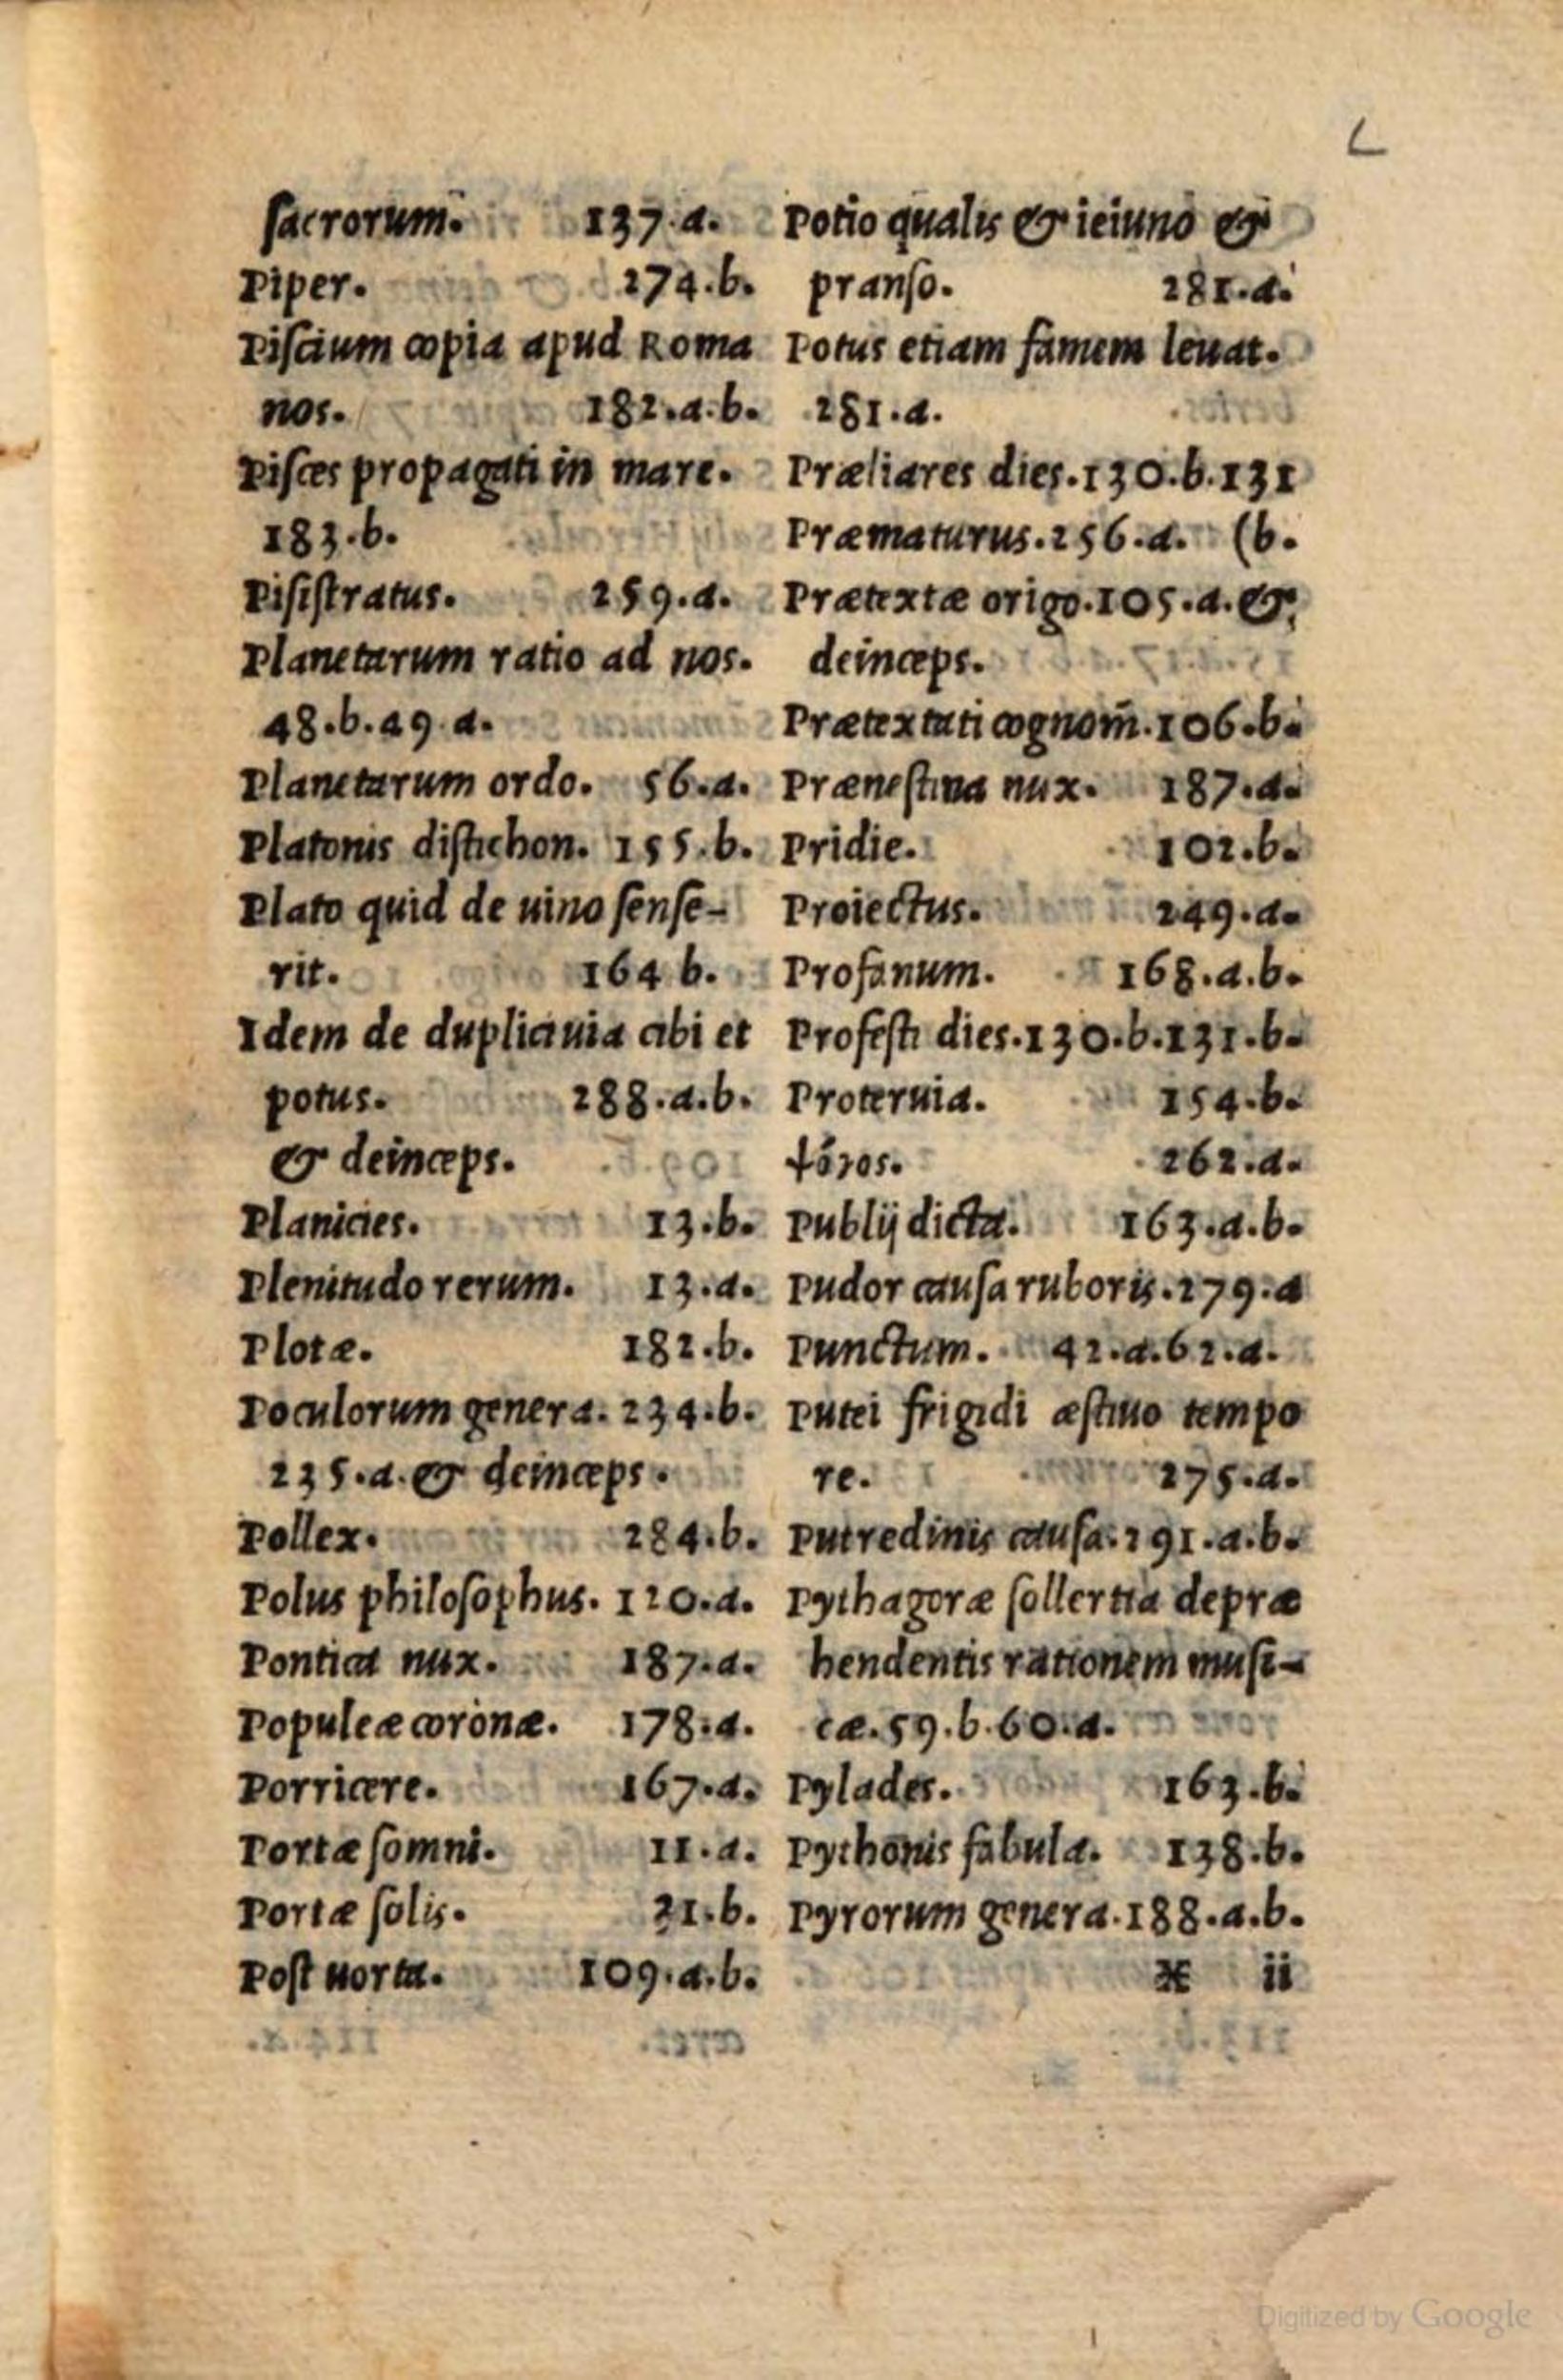 sacrorum. 137.a.
Piper. 274.b.
Piscium copia apud Roma
nos. 182.a.b.
Pisces propagati in mare.
183.b.
Pisistratus. 259.a.
Planetarum ratio ad nos.
48.b.49 a.
Planetarum ordo. 56.a.
Platonis distichon. 155.b.
Plato quid de uino sense-
rit. 164 b.
Idem de duplici uia cibi et
potus. 288.a.b.
& deinceps.
Planicies. 13.b.
Plenitudo rerum. 13.a.
Plotæ. 182.b.
Poculorum genera. 234.b.
235.a.& deinceps.
Pollex. 284.b.
Polus philosophus. 120.a.
Pontica nux. 187.a.
Populeæ coronæ. 178.a.
Porricere. 167.a.
Portæ somni. 11.a.
Portæ solis. 31.b.
Post uorta. 109.a.b.
Potio qualis & ieiuno &
pranso. 281.a.
Potus etiam famem leuat.
281.a.
Præliares dies.130.b.131
Præmaturus.256.a. (b.
Prætextæ origo.105.a.&
deinceps.
Prætextati cognom̄.106.b.
Prænestina nux. 187.a.
Pridie. 102.b.
Proiectus. 249.a.
Profanum. 168.a.b.
Profesti dies.130.b.131.b.
Proteruia. 154.b.
262.a.
Publij dicta. 163.a.b.
Pudor causa ruboris.279.a
Punctum. 42.a.62.a.
Putei frigidi æstiuo tempo
re. 275.a.
Putredinis causa.291.a.b.
Pythagoræ sollertia depræ
hendentis rationem musi-
cæ.59.b.60.a.
Pylades. 163.b.
Pythonis fabula. 138.b.
Pyrorum genera.188.a.b.
ii
Digitized by Google